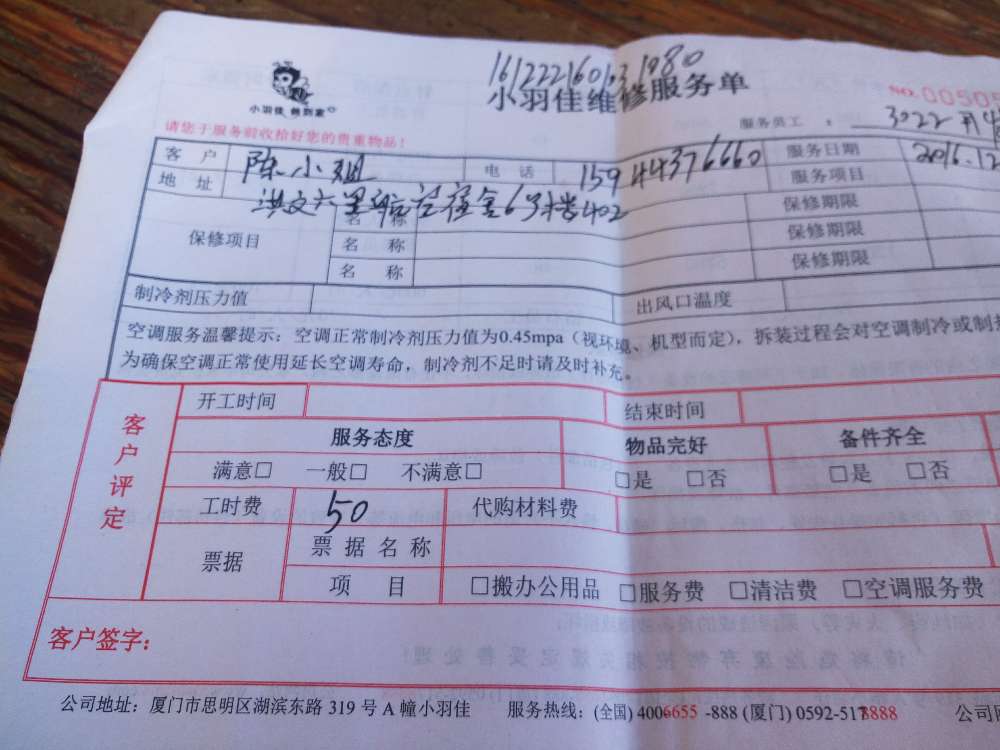 1612221601031080
小羽佳 做到家
小羽佳维修服务单
NO. 00505
请您于服务前收拾好您的贵重物品!
服务员工 : 3022
客 户 陈小姐 电 话 15944376660 服务日期 2016.12
地 址 洪文六里 宿舍63楼402 服务项目
保修项目 名 称 保修期限
名 称 保修期限
名 称 保修期限
制冷剂压力值 出风口温度
空调服务温馨提示: 空调正常制冷剂压力值为0.45mpa (视环境、机型而定), 拆装过程会对空调制冷或制
为确保空调正常使用延长空调寿命, 制冷剂不足时请及时补充。
客户评定
开工时间 结束时间
服务态度 物品完好 备件齐全
满意□ 一般□ 不满意□ □是 □否 □是 □否
工时费 50 代购材料费
票据 票据名称
项 目 □搬办公用品 □服务费 □清洁费 □空调服务费
客户签字:
公司地址: 厦门市思明区湖滨东路 319 号 A 幢小羽佳 服务热线: (全国) 4006655 -888 (厦门) 0592-5178888 公司